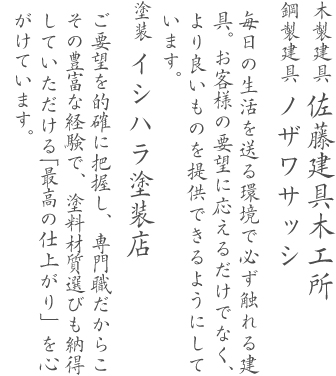 木製建具 佐藤建具木工所
鋼製建具 ノザワサッシ
毎日の生活を送る環境で必ず触れる建
具。お客様の要望に応えるだけでなく、
より良いものを提供できるようにして
います。
塗装 イシハラ塗装店
ご要望を的確に把握し、専門職だからこ
その豊富な経験で、塗料材質選びも納得
していただける「最高の仕上がり」を心
がけています。